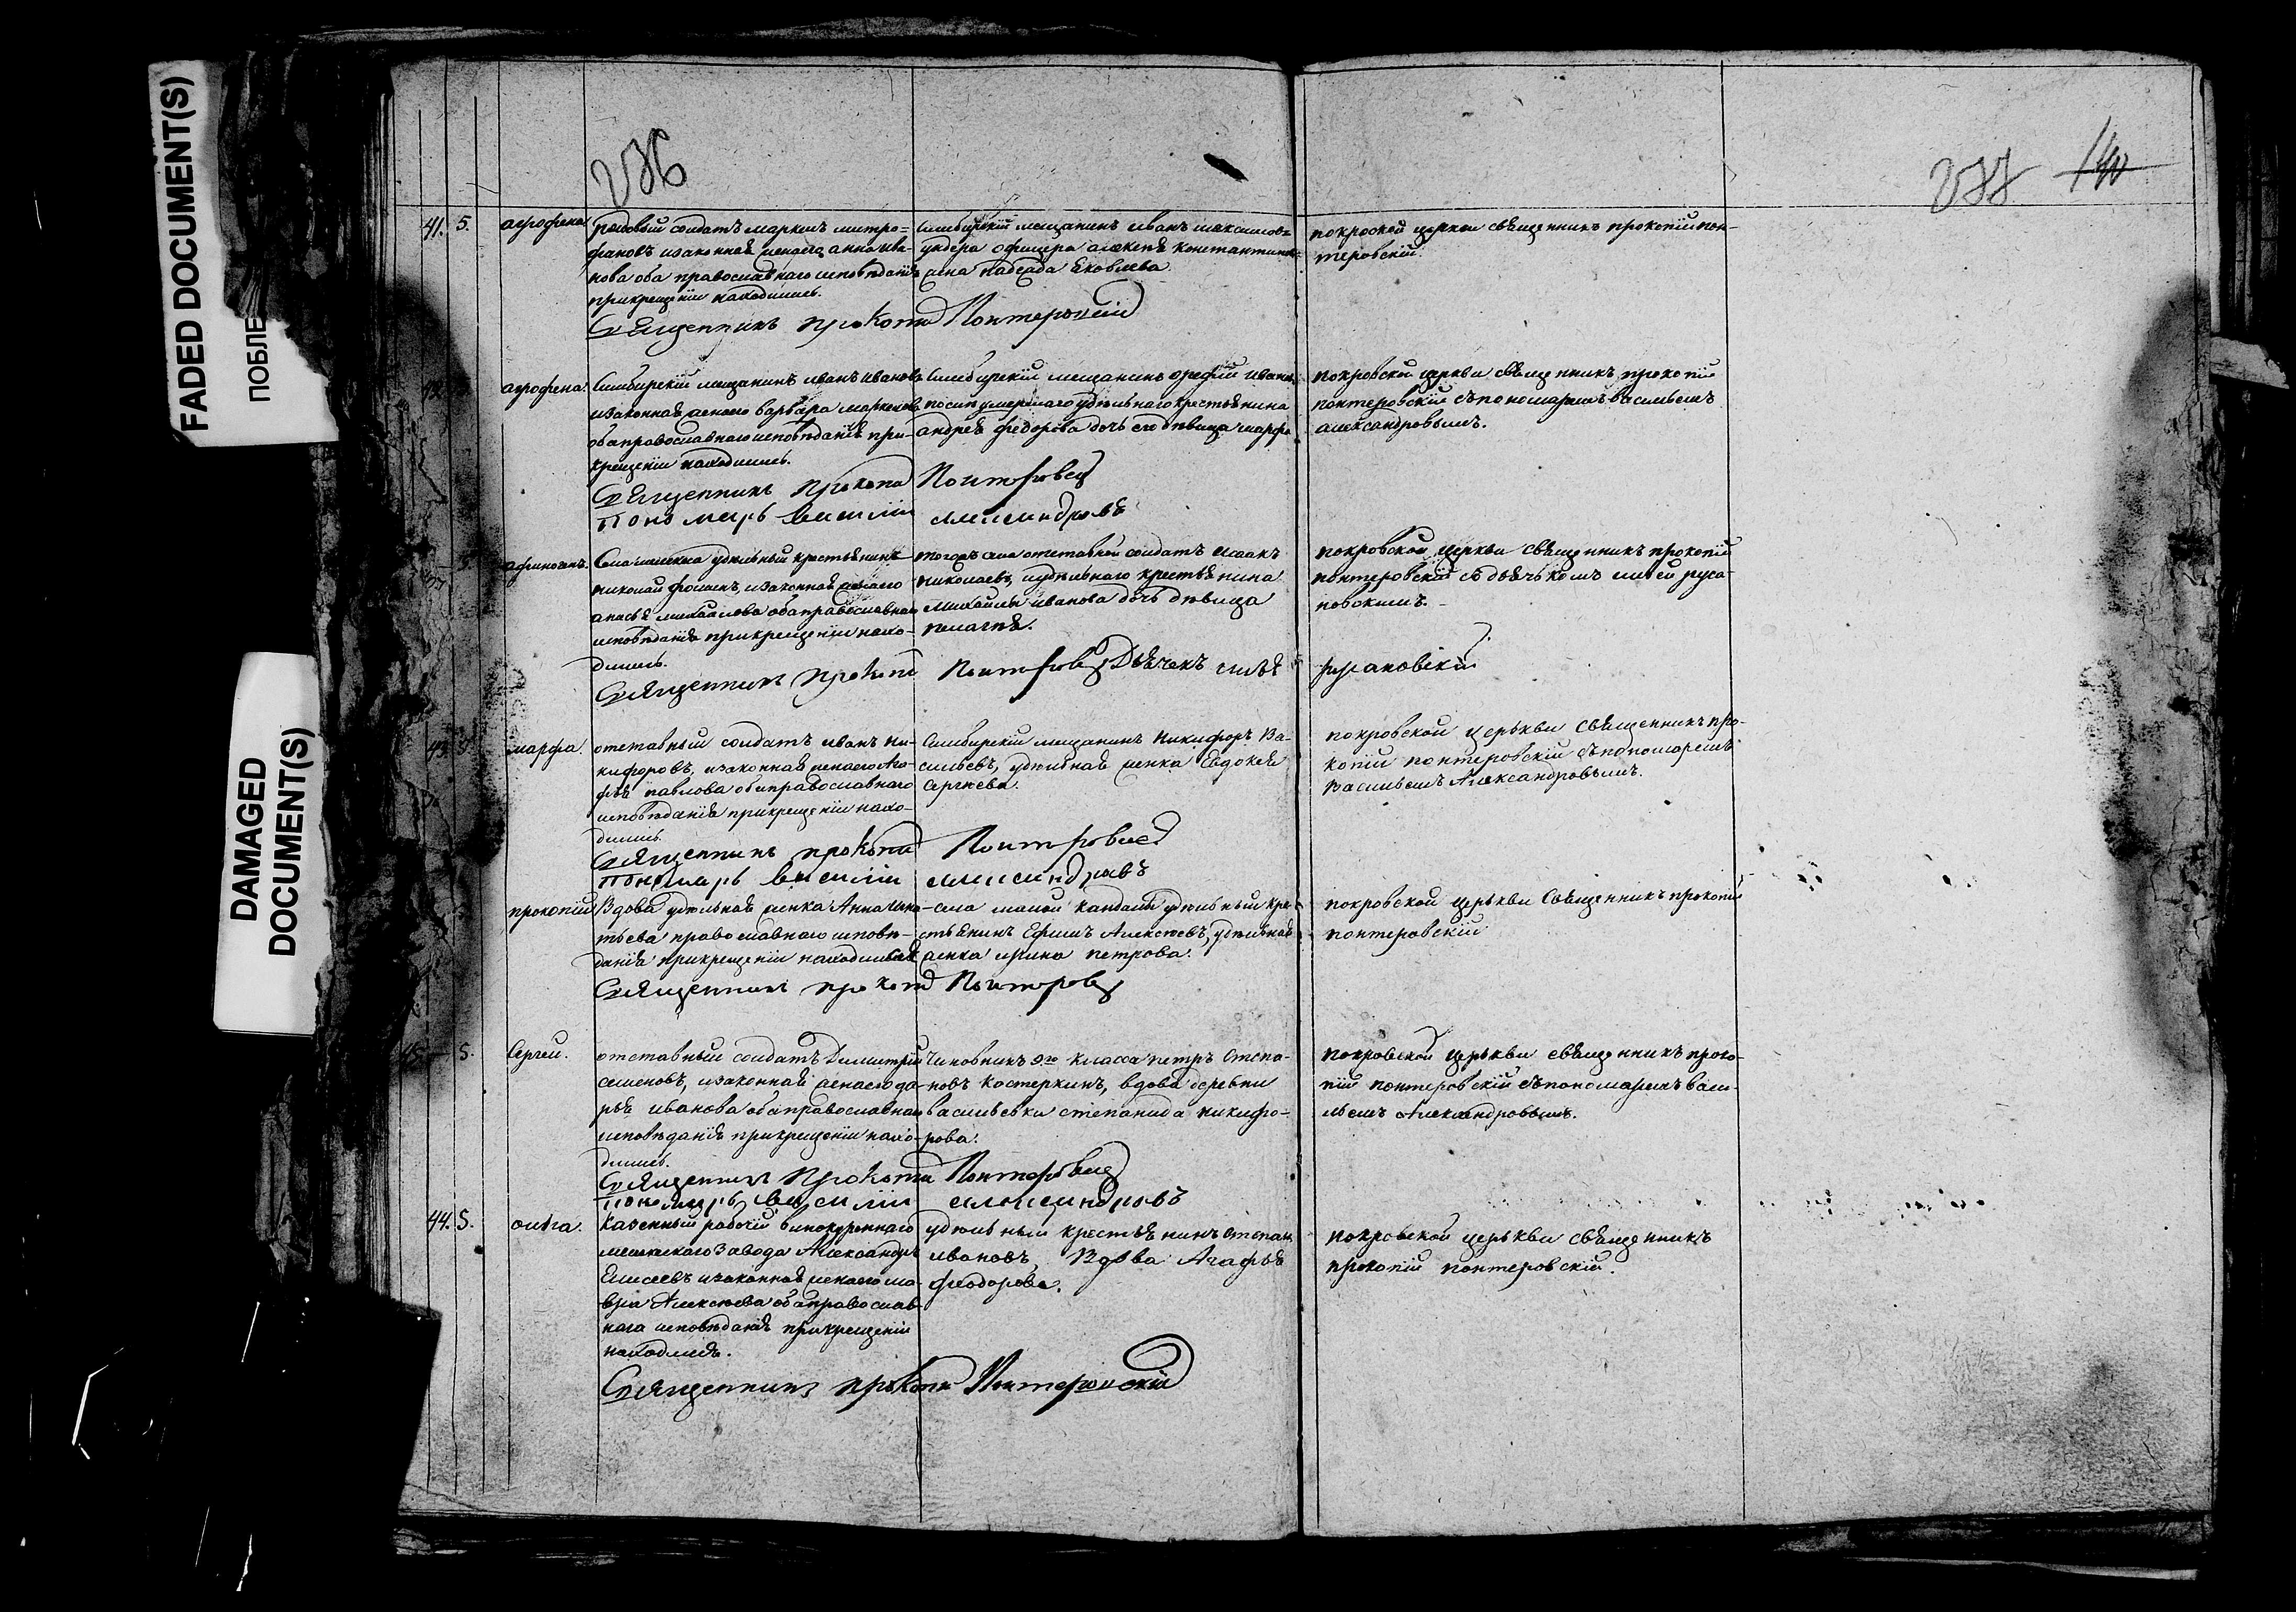 FADED DOCUMENT(S)
ПОБЛЕ
DAMAGED
DOCUMENT(S)
236
237
41. 5. агрофена
рядовый солдатъ маркелъ митро=
фановъ изаконная женаего анна ива
нова оба православнаго исповѣданія
прикрещеніи находились.
Симбирскій мещанинъ иванъ максимовъ
ундера офицера алексѣя константино
жена надежда Яковлева.
покроской церкви священникъ прокопій пон-
теровскій.
Священникъ прокопій Понтеровскій
агрофена.
Симбирскій мещанинъ иванъ ивановъ
изаконная женаего варвара маркелова
обаправославнаго исповѣданія при-
крещеніи находились.
Симбирскій мещанинъ иванъ
послѣ умершаго удѣльнаго крестьянина
андрея федорова дочь его дѣвица марфа
покровской церкви священникъ прокопій
понтеровскій съпономаремъ васильемъ
александровымъ.
Священникъ прокопій Понтеровскій
Пономарь василій александровъ
5. афиногенъ.
Села удѣльный крестьянинъ
николай фоминъ, изаконная женаего
анасья михайлова обаправославнаго
исповѣданія прикрещеніи нахо-
дились.
тогожъ села отставной солдатъ исаакъ
николаевъ, иудѣльнаго крестьянина
Михайлы иванова дочь дѣвица
пелагѣя.
покровской церкви священникъ прокопій
понтеровскій съ дьячькомъ ильей руса-
новскимъ.
Священникъ прокопій Понтеровскій Дьячекъ илья русановскій
марфа.
отставный солдатъ иванъ ни-
кифоровъ, изаконная женаего Ага-
фья павлова обаправославнаго
исповѣданія прикрещеніи нахо-
дились.
Симбирскій мещанинъ Никифоръ Ва-
сильевъ, удѣльная женка Евдокея
Сергѣева.
покровской церькви Священникъ про-
копій понтеровскій съпономаремъ
Васильемъ Александровымъ.
Священникъ прокопій Понтеровскій
Пономарь василій александровъ
прокопій
Вдова удѣльная женка Анна Игна-
тьева православнаго исповѣ-
данія прикрещеніи находилась
села малой кандалы удѣльный кре-
стьянинъ Ефимъ Алексѣевъ, удѣльная
женка ирина петрова.
покровской церькви Священникъ прокопій
понтеровскій
Священникъ прокопій Понтеровскій
5. Сергей.
отставный солдатъ Димитрий
семеновъ, изаконная женаего да-
рья иванова обаправославнаго
исповѣданія прикрещеніи нахо-
дились.
Чиновникъ 9го класса петръ Степа-
новъ Костеркинъ, вдова деревни
васильевки степанида никифо-
рова.
покровской церькви священникъ проко-
пій понтеровскій съпономаремъ васи-
льемъ Александровымъ.
Священникъ прокопій Понтеровскій
Пономарь василій александровъ
44. 5. ольга.
казенный рабочій винокуреннаго
завода Александръ
Елисеевъ изаконная женаего ма-
вра Алексѣева обаправослав-
наго исповѣданія прикрещеніи
находились.
удѣльный крестьянинъ Степанъ
ивановъ, Вдова Агафья
феодорова.
покровской церькви священникъ
прокопій понтеровскій.
Священникъ прокопій Понтеровскій